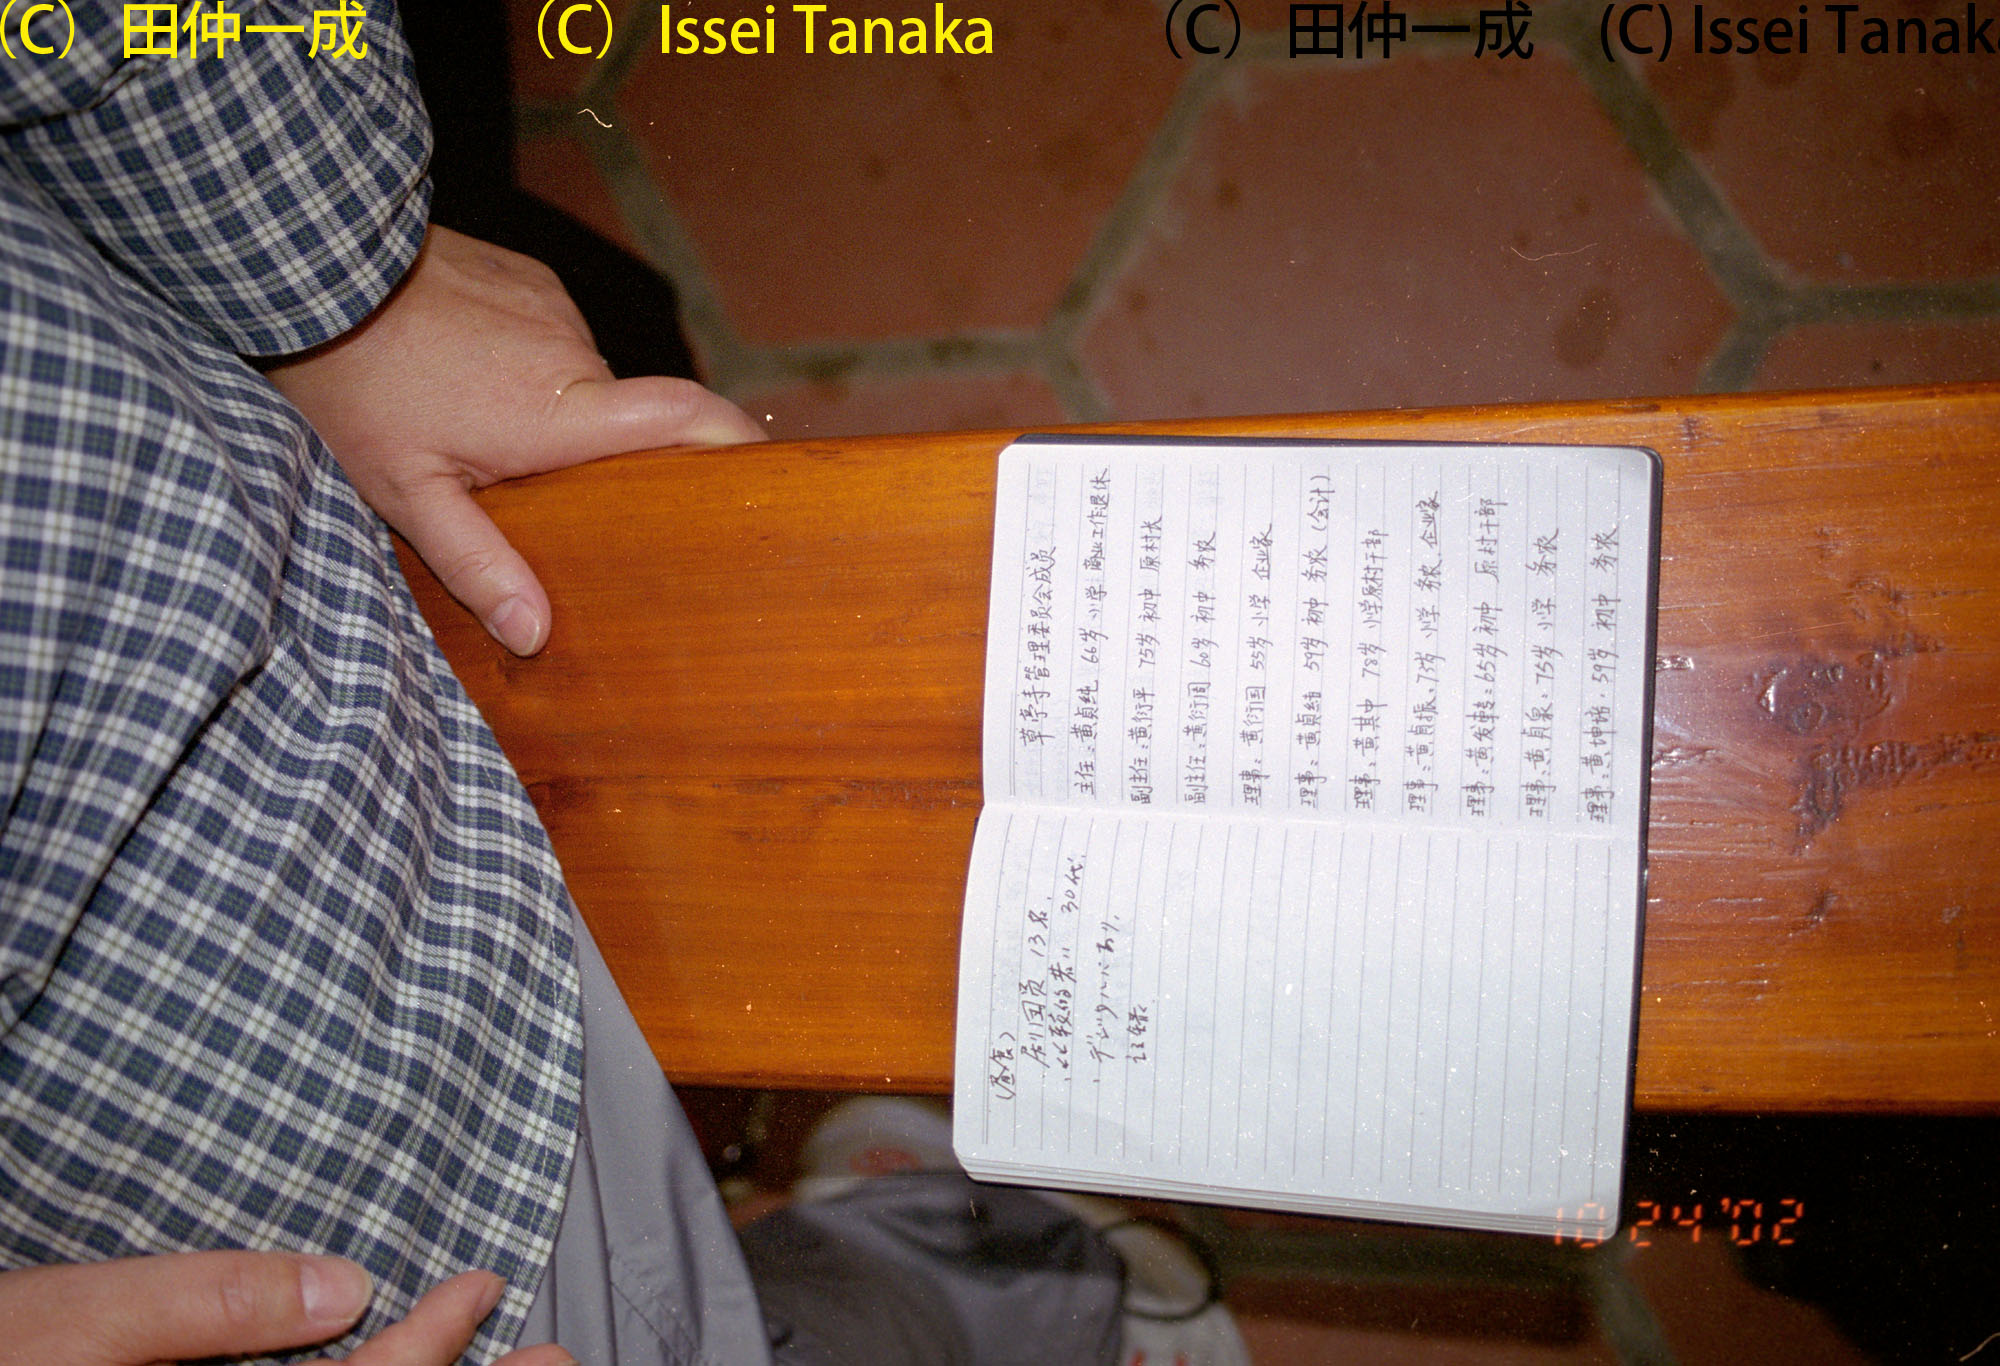 （C） 田仲一成 （C） Issei Tanaka （C） 田仲一成 (C) Issei Tanaka
草亭寺管理委员会成员
主任：黄贞纯 66岁 小学 商业工作退休
副主任：黄衍平 75岁 初中 原村长
副主任：黄衍周 60岁 初中 务农
理事：黄衍国 55岁 小学 企业家
理事：黄贞绪 59岁 初中 务农（会计）
理事：黄其中 78岁 小学 原村干部
理事：黄贞振、73岁 小学 务农、企业家
理事：黄发 65岁 初中 原村干部
理事：黄贞泉：75岁 小学 务农
理事：黄坤 59岁 初中 务农
(昼食)
劇団员 13名.
・比較的若い 30代.
・デジタルパあり.
10 24 '02